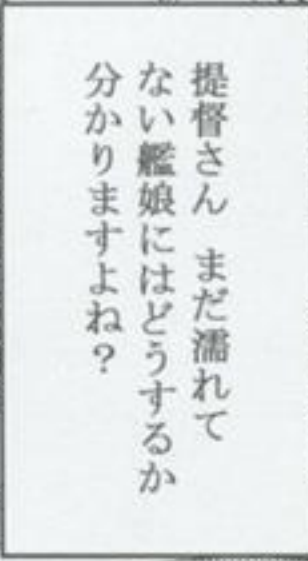 提督さん　まだ濡れて
ない艦娘にはどうするか
分かりますよね？